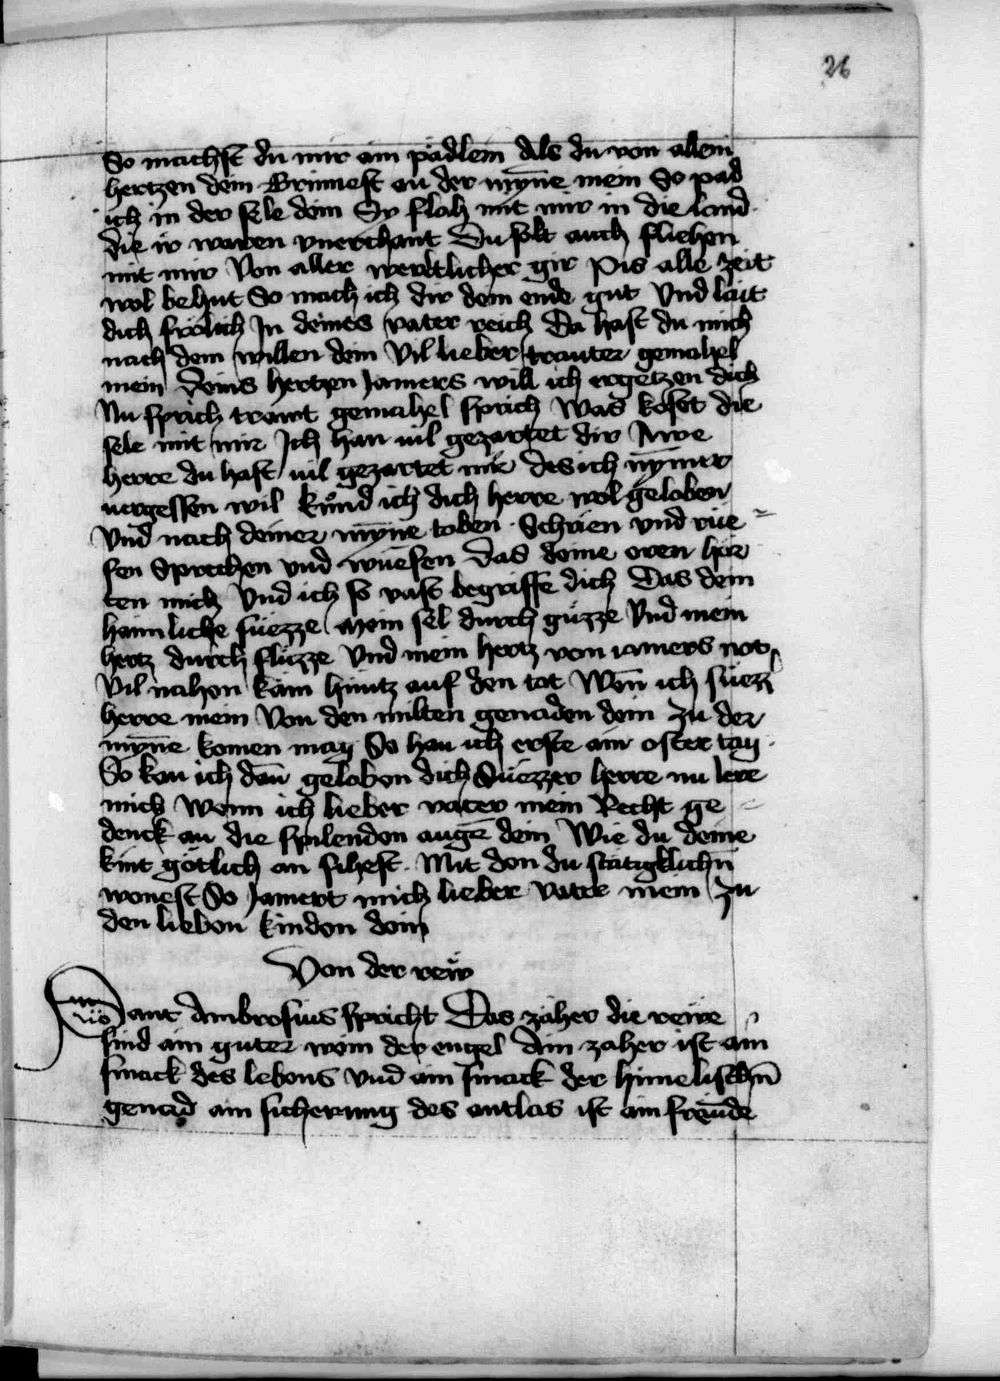 26
So machst du mir ain pädlein Als du von allem
hertzen dein Brinnest an der mÿne mein So pad
ich in der sele dein Sy floh mit mir in die land
die ir waren vnerchant Du solt auch fliehen
mit mir Von aller werltlicher gir Pis alle zeit
wol behut So mach ich dir dein ende gut Vnd lait
dich frölich In deines vater reich Da hast du mich
nach dem willen dein Vil lieber trauter gemahel
mein Deins hertzen Jamers will ich ergetzen dich
Nu sprich trawt gemahel sprich Was koset die
sele mit mir Ich han uil gezartet dir Awe
herre du hast uil gezartet mir des ich nÿmer
uergessen wil kůnd ich dich herre wol geloben
Vnd nach deiner mÿne toben Schrien vnd rüe
fen Sprechen vnd wüefen Das deine oren hör
ten mich Vnd ich so vast begriffe dich Das dein
haimliche süezze Mein sel durch güzze Vnd mein
hertz durch flüzze Vnd mein hertz von iamers not
Vil nahen käm hintz auf den tot Wen̄ ich süezz
herre mein Von den milten genaden dein Zu der
mÿne komen mag So han ich erste ain oster tag
So kan ich dan̄ geloben dich Süezzer herre nu lere
mich Wenn ich lieber vater mein Recht ge
denck an die spilenden augē dein Wie du deine
kint götlich an sihest Mit den du stätigklichn̄
wonest So Jamert mich lieber vater mein Zu
den lieben kinden dein
Von der reẅ
Sant Ambrosius spricht Das zäher die reẅe
sind ain guter wein der engel Ain zaher ist ain
smack des lebens vnd ain smack der himelischn̄
genad ain sicherung des antlas ist ain freẅnde